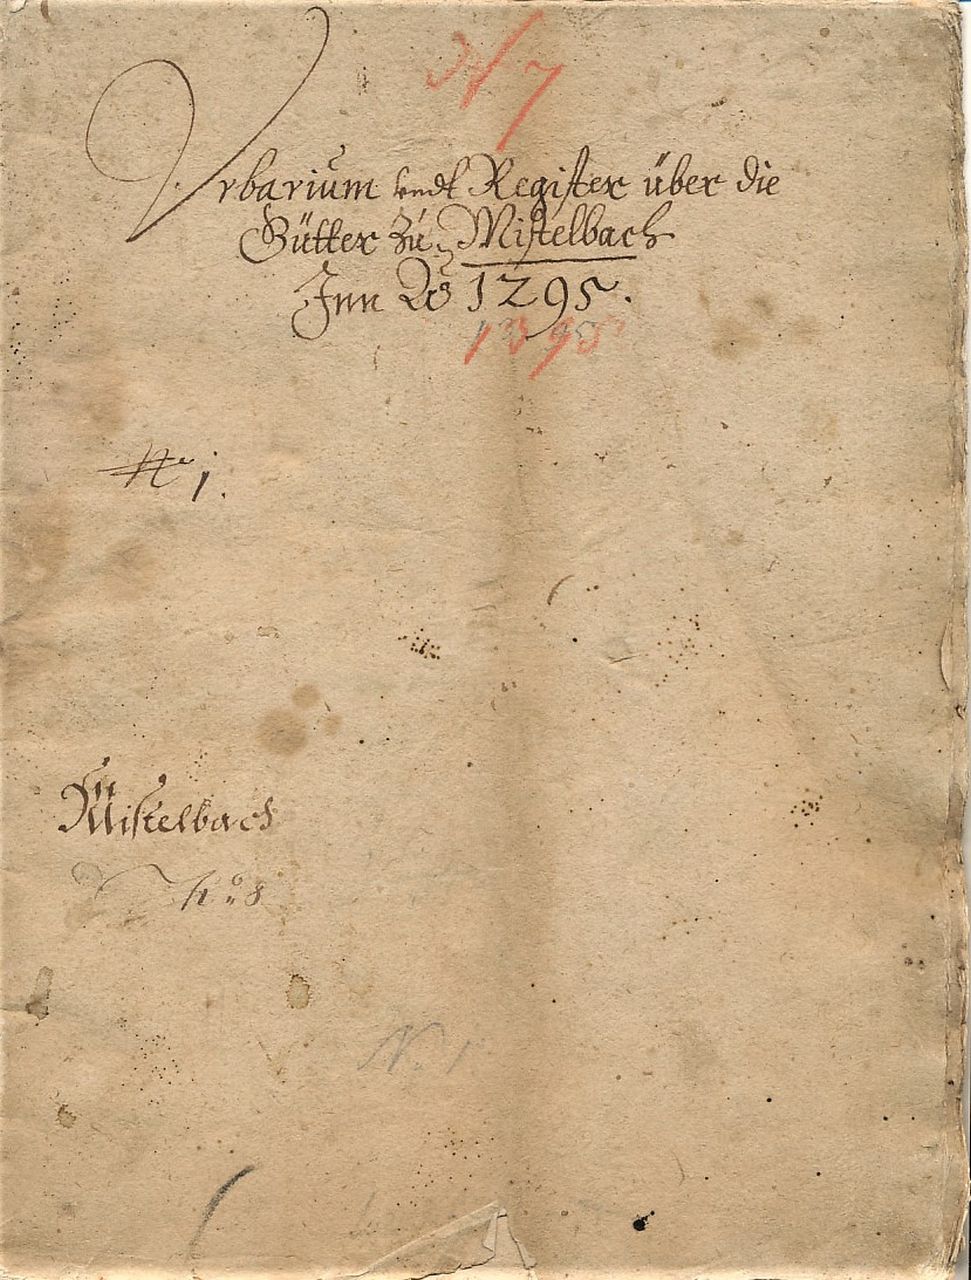 N 7
Vrbarium vndt Register über die
Gütter zu Mistelbach
Inn Ao 1295.
1395
N 1.
Mistelbach
No 8
N. 1